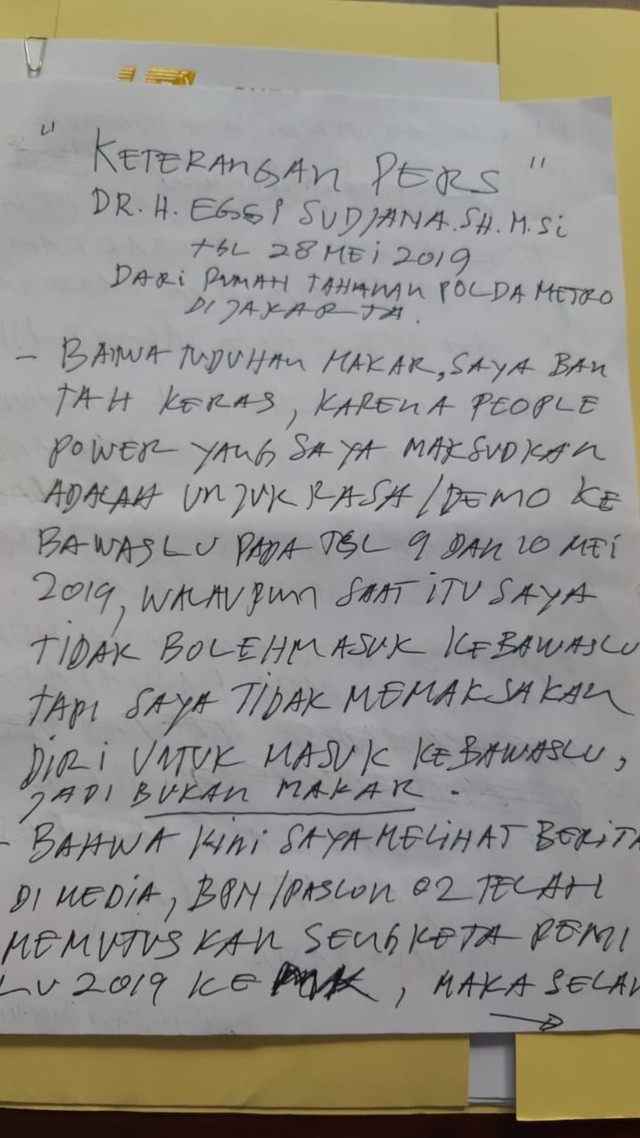 " KETERANGAN PERS "
DR. H. EGGI SUDJANA.SH.M.Si
TGL 28 MEi 2019
DARi RUMAH TAHANAN POLDA METRO
DI JAKARTA.
- BAHWA TUDUHAN MAKAR, SAYA BAN
TAH KERAS, KARENA PEOPLE
POWER YANG SAYA MAKSUDKAN
ADALAH UNJUK RASA/DEMO KE
BAWASLU PADA TGL 9 DAN 10 MEI
2019, WALAUPUN SAAT ITU SAYA
TIDAK BOLEH MASUK KEBAWASLU
TAPI SAYA TIDAK MEMAKSAKAN
DIRI UNTUK MASUK KEBAWASLU,
JADI BUKAN MAKAR.
- BAHWA KINI SAYA MELIHAT BERITA
DI MEDIA, BPN/PASLON 02 TELAH
MEMUTUSKAN SENGKETA PEMI
LU 2019 KE MK, MAKA SELAN